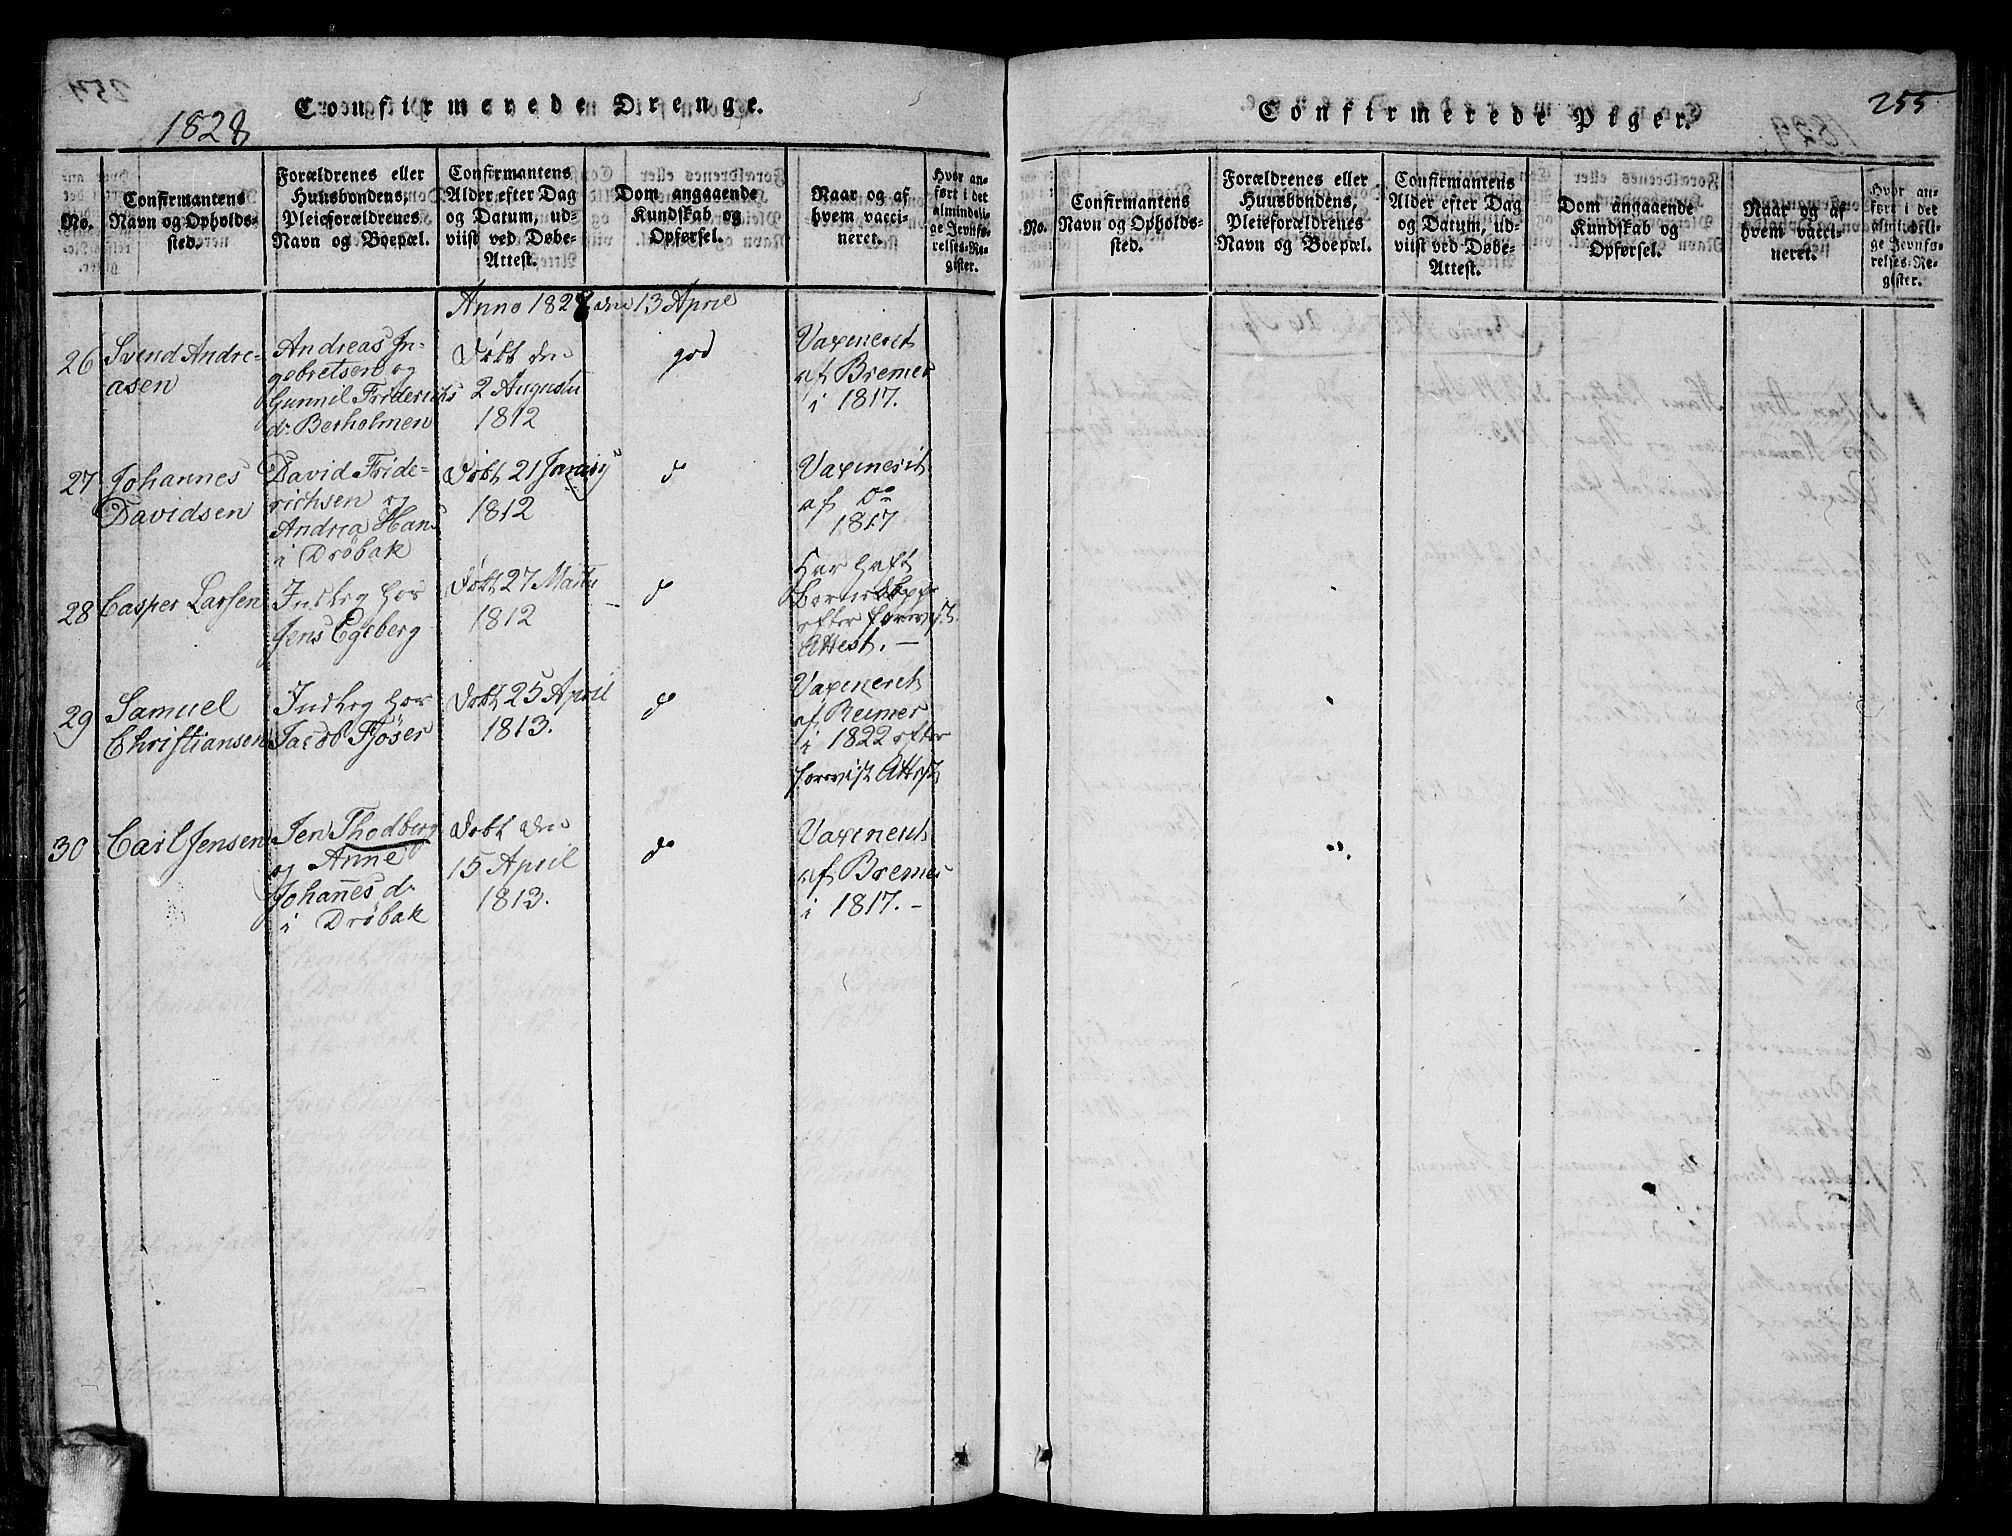 1828
Confirmerede Drenge.
No.
Confirmantens
Navn og Opholds-
sted.
Forældrenes eller
Huusbondens,
Pleieforældrenes
Navn og Boepæl.
Confirmantens
Alder efter Dag
og Datum, ud-
viist ved Døbe-
Attest.
Dom angaaende
Kundskab og
Opførsel.
Naar og af
hvem vacci-
neret.
Hvor an-
ført i det
almindeli-
ge Jevnfø-
relses-Re-
gister.
Anno 1828 den 13 April
26
Svend Andre-
asen
Andreas In-
gebretsen og
Gunnil Friderichs
dr. Berholmen
Døbt den
2 Augustu
1812
god
Vaxinerit
af Bremer
i 1817.
27
Johannes
Davidsen
David Fride-
richsen og
Andrea Hans
i Drøbak
Døbt 21 Januarij
1812
do
Vaxinerit
af Do
1817
28
Casper Larsen
Indlog hos
Jens Egeberg
Døbt 27 Martu
1812
do
Har haft
Børnekopper
efter forevist
Attest. —
29
Samuel
Christiansen
Indlog hos
Jacob Fjøser
Døbt 25 April
1813.
do
Vaxinerit
af Reimer
i 1822 efter
forevist Attest
30
Carl Jensen
Jen Thodberg
og Anne
Johanes dr
i Drøbak
Døbt den
15 April
1813.
do
Vaxinerit
af Bremer
i 1817. –
255
Confirmerede Piger.
No.
Confirmantens
Navn og Opholds-
sted.
Forældrenes eller
Huusbondens,
Pleieforældrenes
Navn og Boepæl.
Confirmantens
Alder efter Dag
og Datum, ud-
viist ved Døbe-
Attest.
Dom angaaende
Kundskab og
Opførsel.
Naar og af
hvem vacci-
neret.
Hvor an-
ført i det
almindeli-
ge Jevnfø-
relses-Re-
gister.